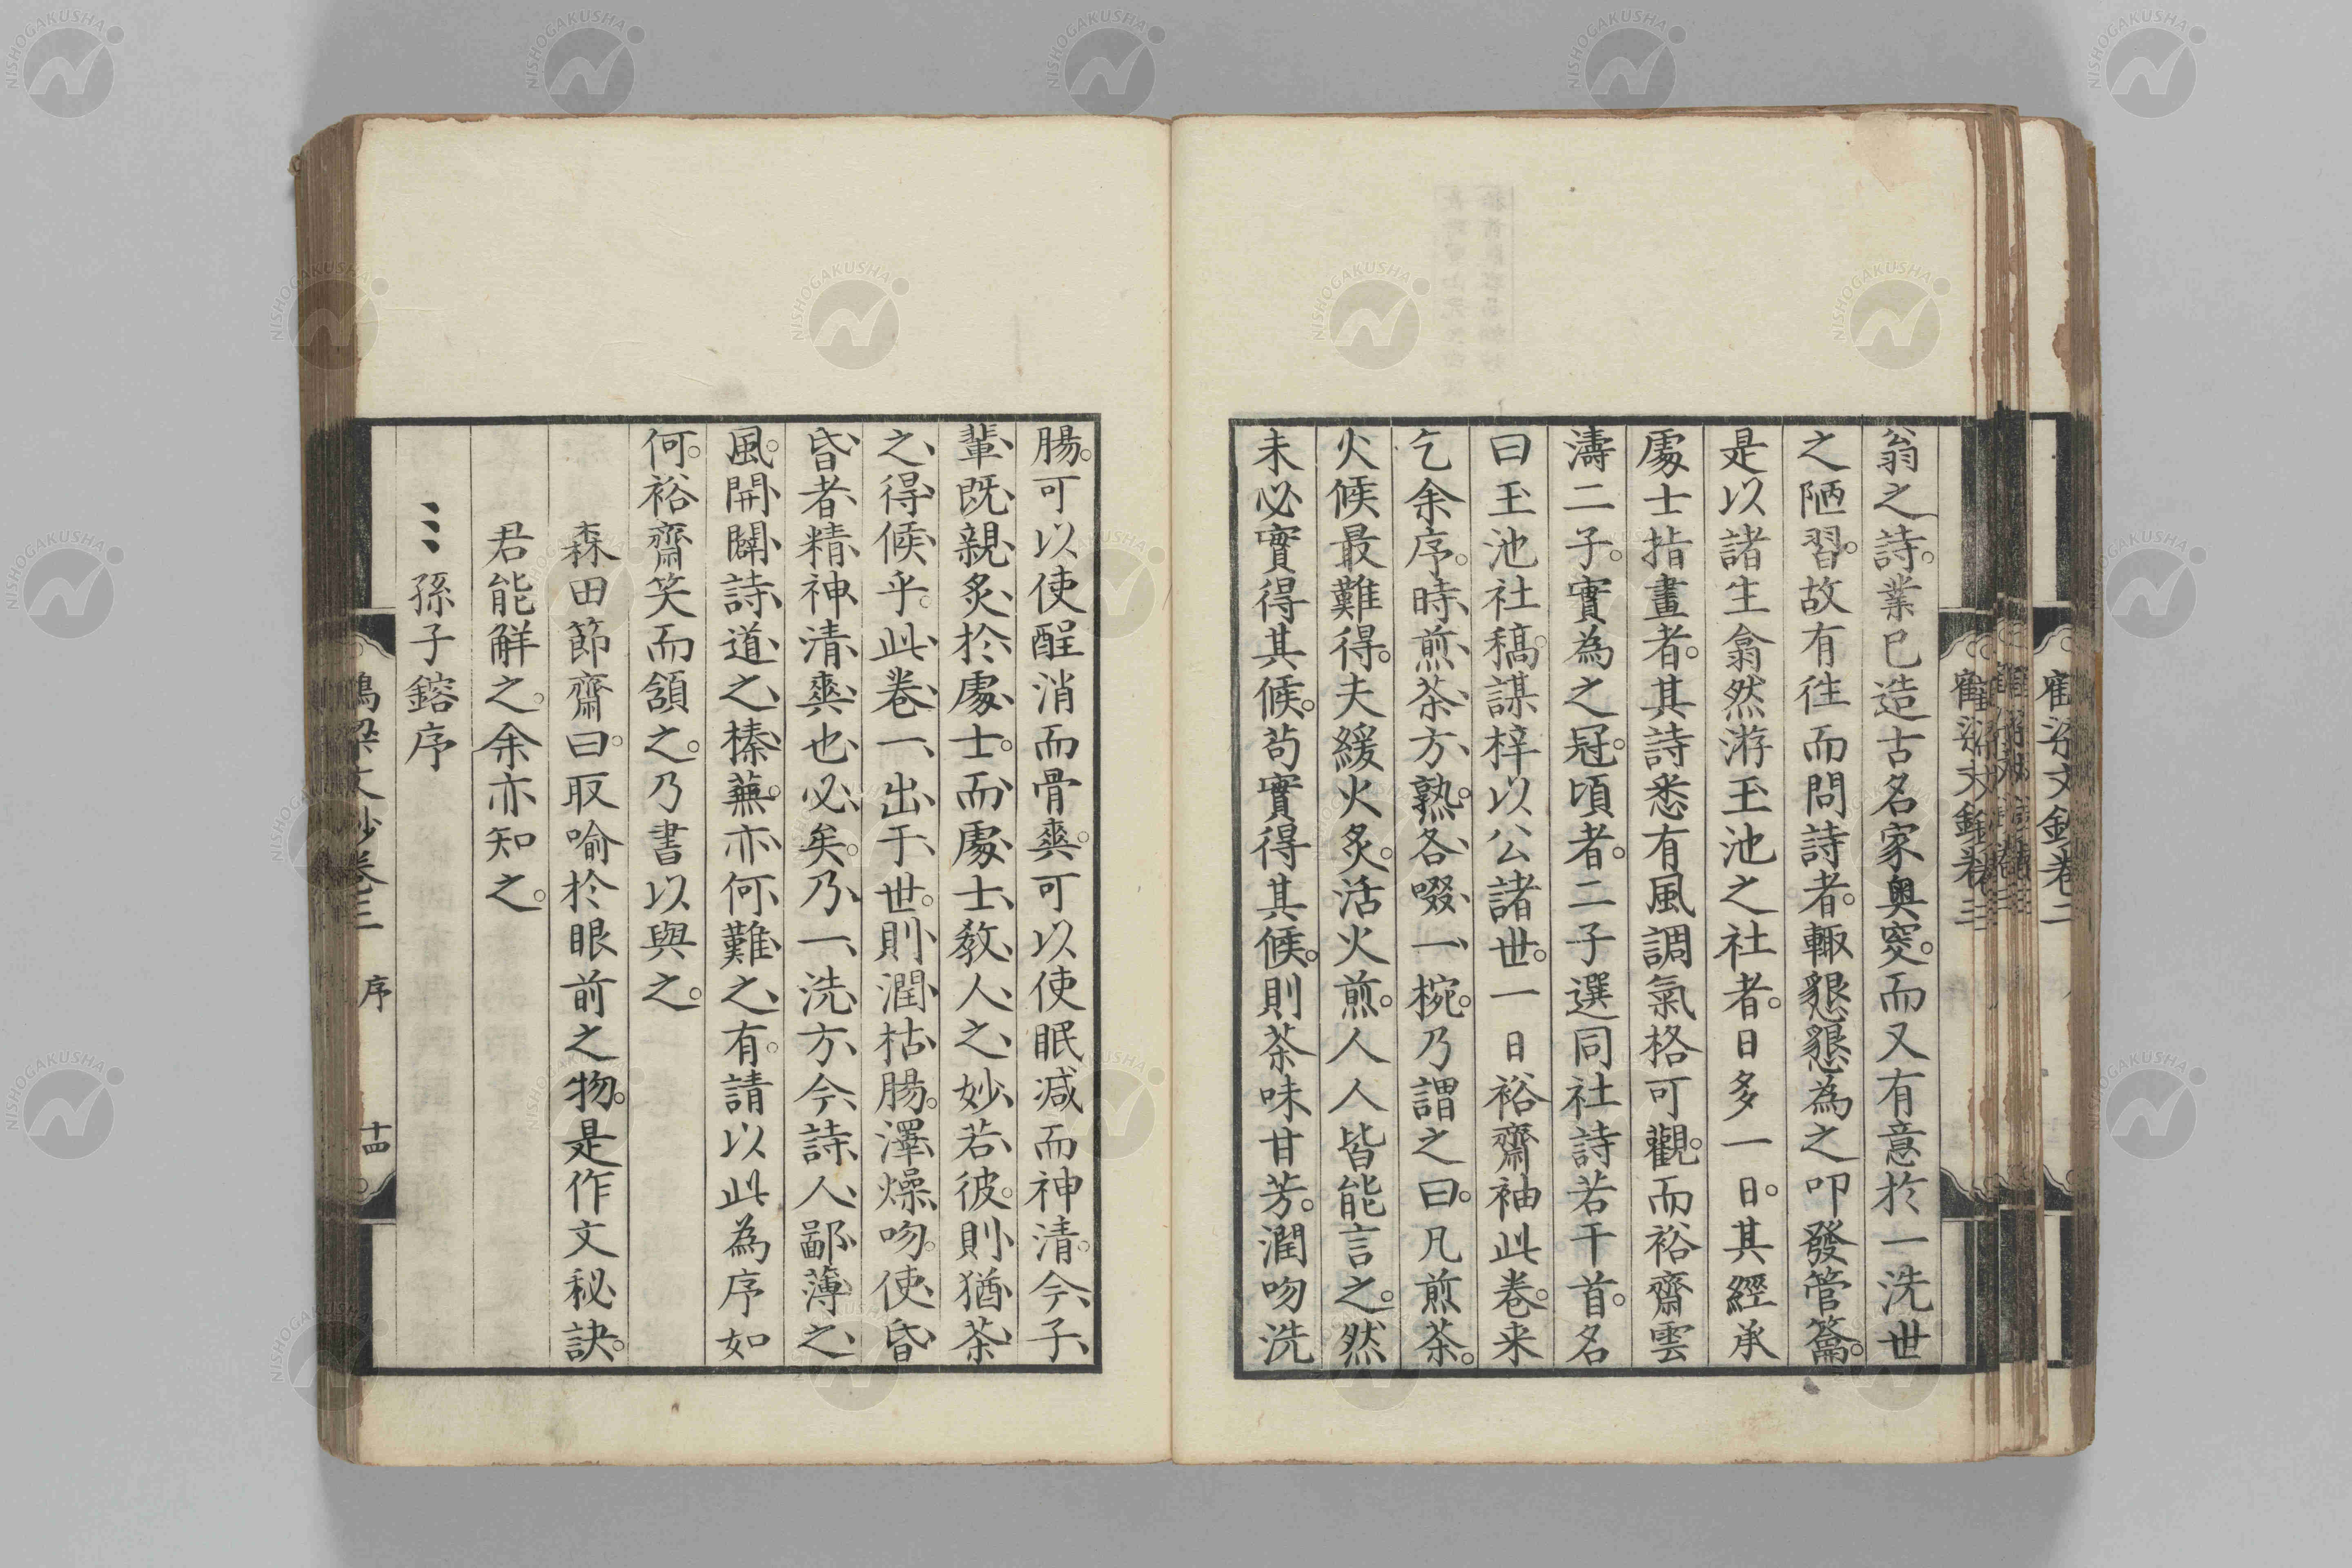 翁之詩。業已造古名家奧窔。而又有意於一洗世
之陋習。故有徃而問詩者。輙懇懇為之叩發管籥。
是以諸生翕然游玉池之社者。日多一日。其經承
處士指畫者。其詩悉有風調氣格可觀。而裕齋雲
濤二子。實為之冠。頃者。二子選同社詩若干首。名
曰玉池社稿。謀梓以公諸世。一日裕齋袖此卷。来
乞余序。時煎茶方熟。各啜一椀。乃謂之曰。凡煎茶。
火候最難得。夫緩火炙。活火煎。人人皆能言之。然
未必實得其候。苟實得其候。則茶味甘芳。潤吻洗
腸。可以使酲消而骨爽。可以使眠減而神清。今子
輩既親炙於處士。而處士教人之妙若彼。則猶茶
之得候乎。此卷一出于世。則潤枯腸。澤燥吻。使昏
昏者精神清爽也必矣。乃一洗方今詩人鄙薄之
風。開闢詩道之榛蕪。亦何難之有。請以此為序如
何。裕齋笑而頷之。乃書以與之。
森田節齋曰。取喻於眼前之物。是作文秘訣。
君能解之。余亦知之。
孫子鎔序
鶴梁文鈔卷三 序 十四
NISHOGAKUSHA